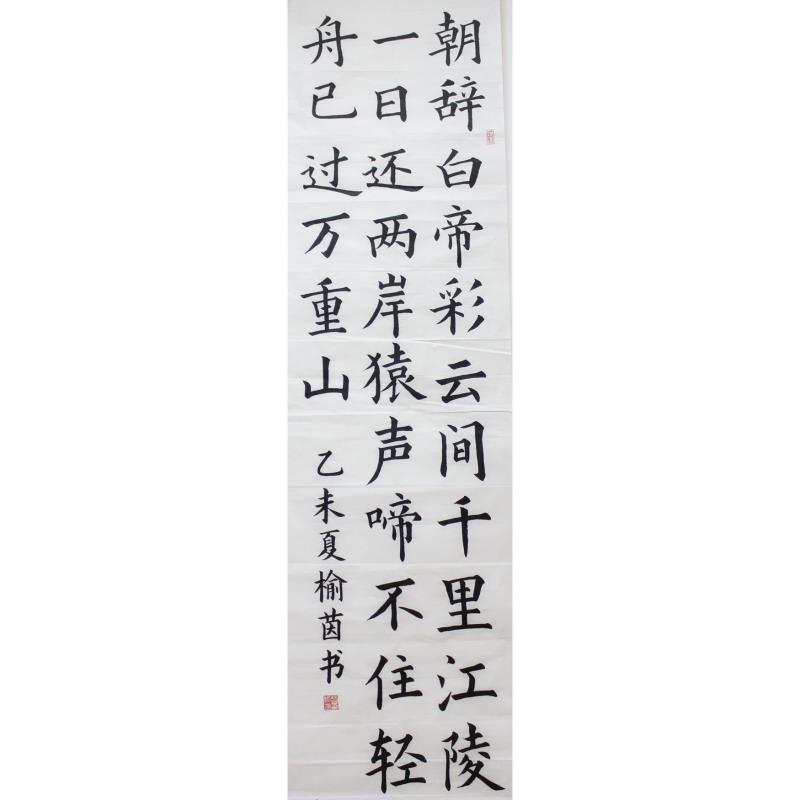 朝辞白帝彩云间千里江陵
一日还两岸猿声啼不住轻
舟已过万重山
乙未夏榆茵书